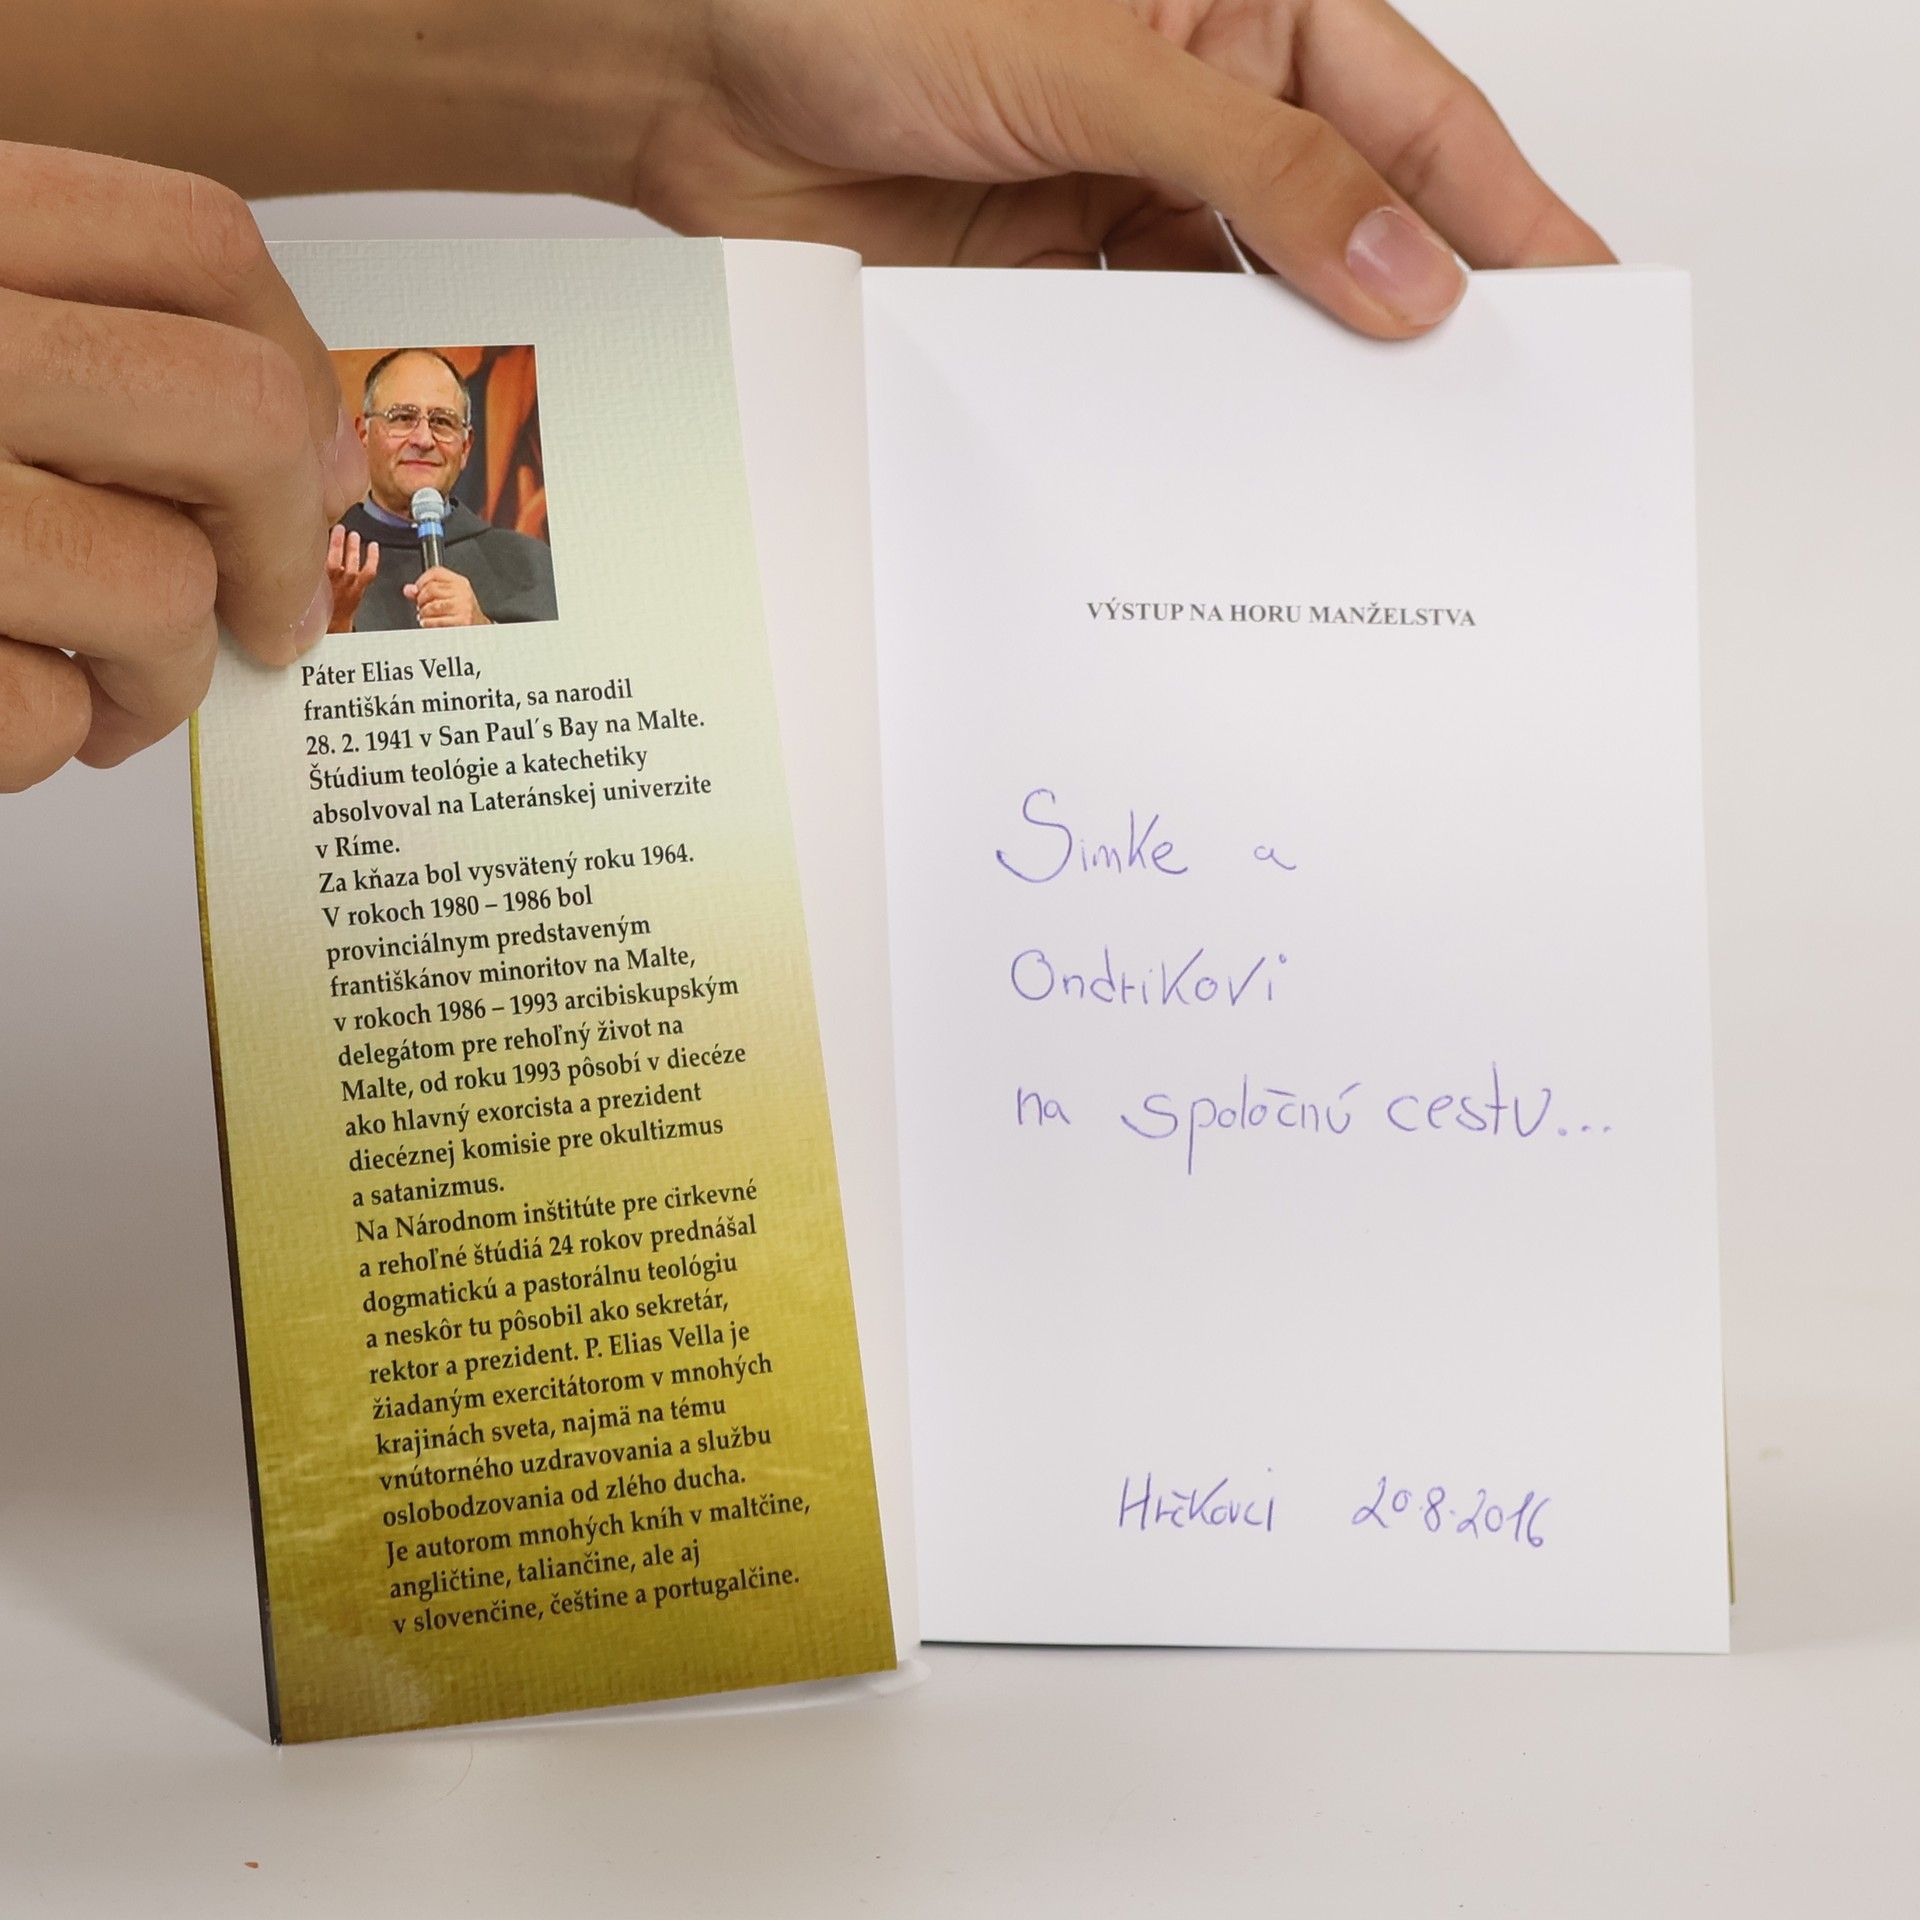 Páter Elias Vella,
františkán minorita, sa narodil
28. 2. 1941 v San Paul´s Bay na Malte.
Štúdium teológie a katechetiky
absolvoval na Lateránskej univerzite
v Ríme.
Za kňaza bol vysvätený roku 1964.
V rokoch 1980 – 1986 bol
provinciálnym predstaveným
františkánov minoritov na Malte,
v rokoch 1986 – 1993 arcibiskupským
delegátom pre rehoľný život na
Malte, od roku 1993 pôsobí v diecéze
ako hlavný exorcista a prezident
diecéznej komisie pre okultizmus
a satanizmus.
Na Národnom inštitúte pre cirkevné
a rehoľné štúdiá 24 rokov prednášal
dogmatickú a pastorálnu teológiu
a neskôr tu pôsobil ako sekretár,
rektor a prezident. P. Elias Vella je
žiadaným exercitátorom v mnohých
krajinách sveta, najmä na tému
vnútorného uzdravovania a službu
oslobodzovania od zlého ducha.
Je autorom mnohých kníh v maltčine,
angličtine, taliančine, ale aj
v slovenčine, češtine a portugalčine.
VÝSTUP NA HORU MANŽELSTVA
Simke a
Ondrikovi
na spoločnú cestu...
Hrčkovci 20.8.2016